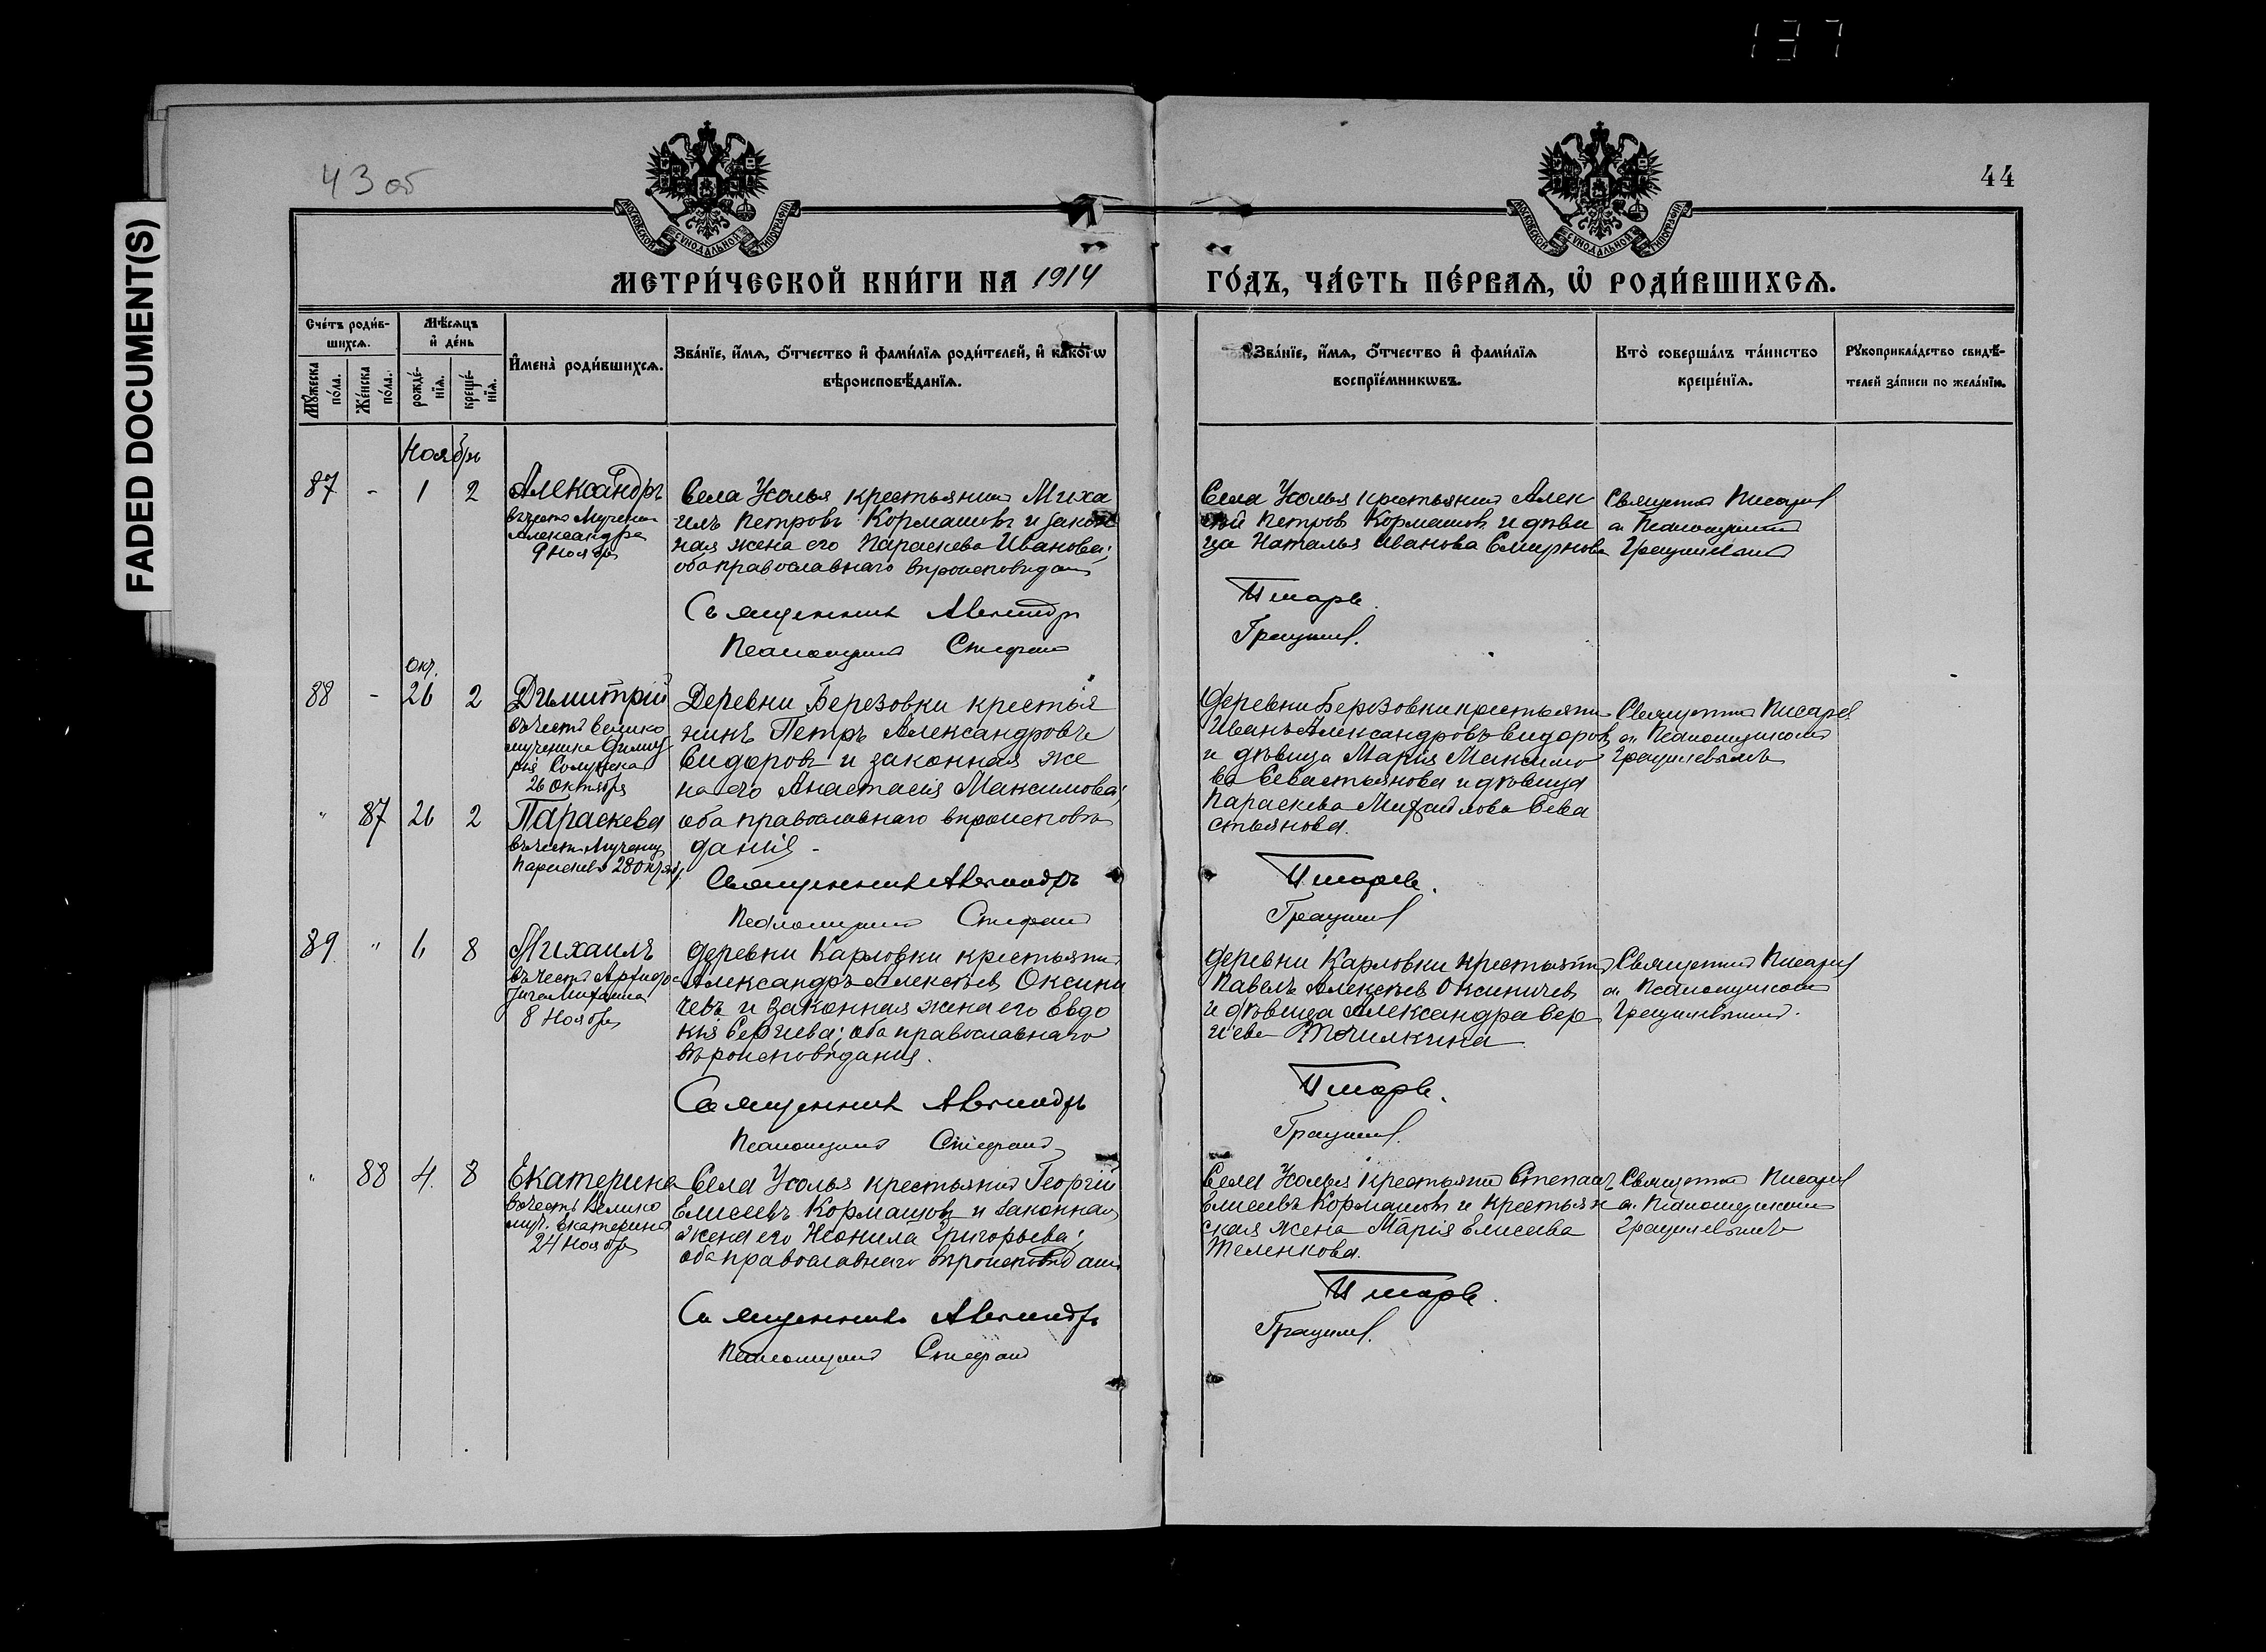 137
FADED DOCUMENT(S)
43 об
44
МОСКОВСКОЙ СУНОДАЛЬНОЙ ТИПОГРАФІИ
МОСКОВСКОЙ СУНОДАЛЬНОЙ ТИПОГРАФІИ
МЕТРИ́ЧЕСКОЙ КНИ́ГИ НА 1914 ГО́ДЪ, ЧА́СТЬ ПЕ́РВАѦ, Ѡ РОДИ́ВШИХСѦ.
Сче́тъ роди́в-
шихсѧ.
Мѣ́сѧцъ
и҆ де́нь
Мꙋ́жеска по́ла.
Же́нска по́ла.
рожде́-нїѧ.
креще́-нїѧ.
И҆мена̀ роди́вшихсѧ.
Зва́нїе, и҆́мѧ, ѻ҆́тчество и҆ фами́лїѧ роди́телей, и҆ како́гѡ
вѣроисповѣ́данїѧ.
Зва́нїе, и҆́мѧ, ѻ҆́тчество и҆ фами́лїѧ
воспрїе́мникѡвъ.
Кто̀ соверша́лъ та́инство
креще́нїѧ.
Рꙋкоприкла́дство свидѣ́-
телей за́писи по жела́нїю.
Ноябрь
87 - 1 2
Александръ
въ честь Мученик
Александра
9 Ноября
Села Усолья крестьянинъ Миха
илъ Петровъ Кормашовъ и закон
ная жена его Параскева Иванова;
оба православнаго вѣроисповѣдан
Священникъ Александръ
Псаломщикъ Стефанъ
Села Усолья крестьянинъ Алек
сѣй Петров Кормашов и дѣви
ца Наталья Иванова Смирнова
Писарев
Грацилев.
Священникъ Писарев
съ Псаломщикомъ
Грацилевымъ
Окт.
88 - 26 2
Димитрій
въ честь Велико
мученика Димит
рія Солунска
26 Октября
Деревни Березовки крестья
нинъ Петръ Александровъ
Сидоровъ и законная же
на его Анастасія Максимова;
" 87 26 2
Параскева
въ честь Мучениц
Параскевы 28 Октяб.
оба православнаго вѣроисповѣ
данія -
Священникъ Александръ
Псаломщикъ Стефанъ
Деревни Березовки крестьянин
Иванъ Александровъ Сидоров
и дѣвица Марія Максимо
ва Севастьянова и дѣвица
Параскева Михайлова Сева
стьянова.
Писарев.
Грацилев
Священникъ Писарев
съ Псаломщикомъ
Грацилевымъ
89 " 6 8
Михаилъ
въ честь Архистра
тига Михаила
8 Ноября
Деревни Карловки крестьянин
Александръ Алексѣев Оксини
чевъ и законная жена его Евдо
кія Сергиева; оба православнаго
вѣроисповѣданія.
Священникъ Александръ
Псаломщикъ Стефанъ
Деревни Карловки крестьянин
Павелъ Алексѣев Оксиничев
и дѣвица Александра Сер
гиева Точилкина
Писарев.
Грацилев.
Священникъ Писарев
съ Псаломщикомъ
Грацилевымъ.
" 88 4 8
Екатерина
въ честь Велико
муч. Екатерины
24 Ноября
Села Усолья крестьянинъ Георгій
Елисеевъ Кормашов и законная
жена его Неонила Григорьева;
оба православнаго вѣроисповѣдан.
Священникъ Александръ
Псаломщикъ Стефанъ
Села Усолья крестьянинъ Степанъ
Елисеевъ Кормашов и крестьян
ская жена Марія Елисеева
Теленкова.
Писарев.
Грацилев.
Священникъ Писарев
съ Псаломщикомъ
Грацилевымъ